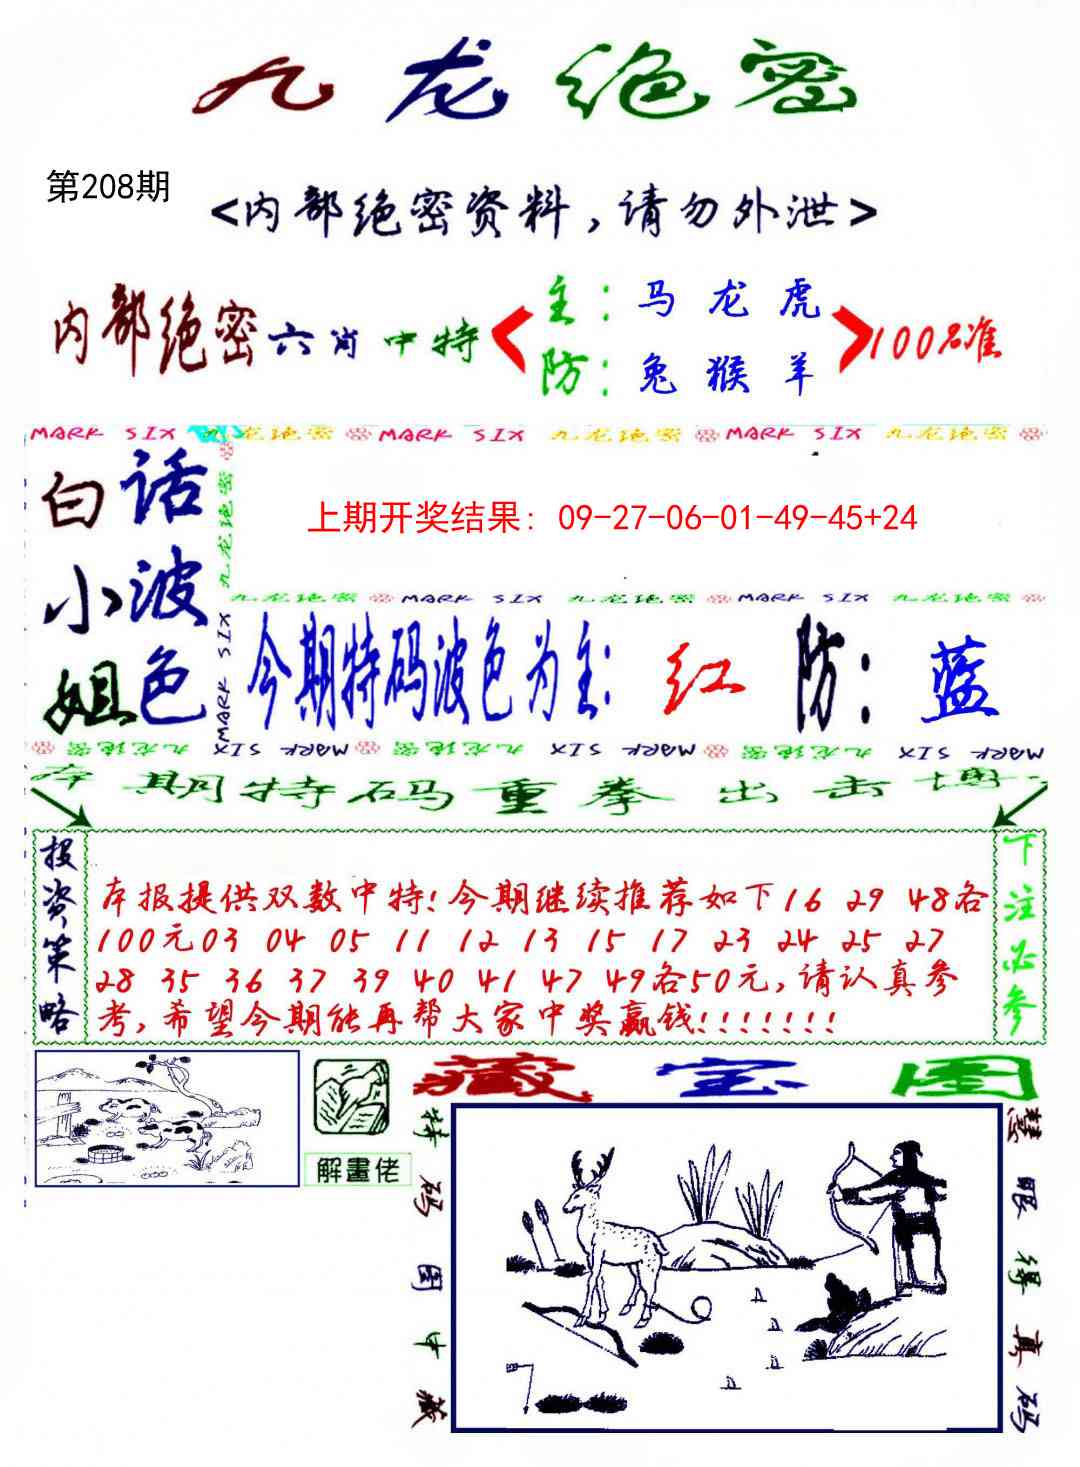 九龙绝密
第208期
<内部绝密资料，请勿外泄>
内部绝密六肖中特
主：马 龙 虎
防：兔 猴 羊
100%准
MARK SIX 九龙绝密 MARK SIX 九龙绝密 MARK SIX 九龙绝密
白小姐
话波色
九龙绝密
MARK SIX
上期开奖结果：09-27-06-01-49-45+24
九龙绝密 MARK SIX 九龙绝密 MARK SIX 九龙绝密
今期特码波色为主：红 防：蓝
九龙绝密 MARK SIX 九龙绝密 MARK SIX 九龙绝密 MARK SIX
本期特码重拳出击博
投资策略
本报提供双数中特！今期继续推荐如下16 29 48各
100元03 04 05 11 12 13 15 17 23 24 25 27
28 35 36 37 39 40 41 47 49各50元，请认真参
考，希望今期能再帮大家中奖赢钱！！！！！！！
下注必参
解畫佬
藏宝图
特码图中藏
慧眼得真码